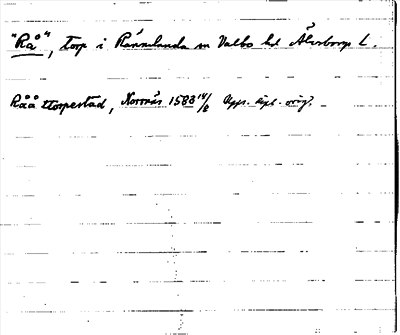 "Rå", torp i Rännelanda sn Valbo hd Älvsborgs l.
Råå ttorpestad, Norrnäs 1588 14/8 Upps. dipl. orig.